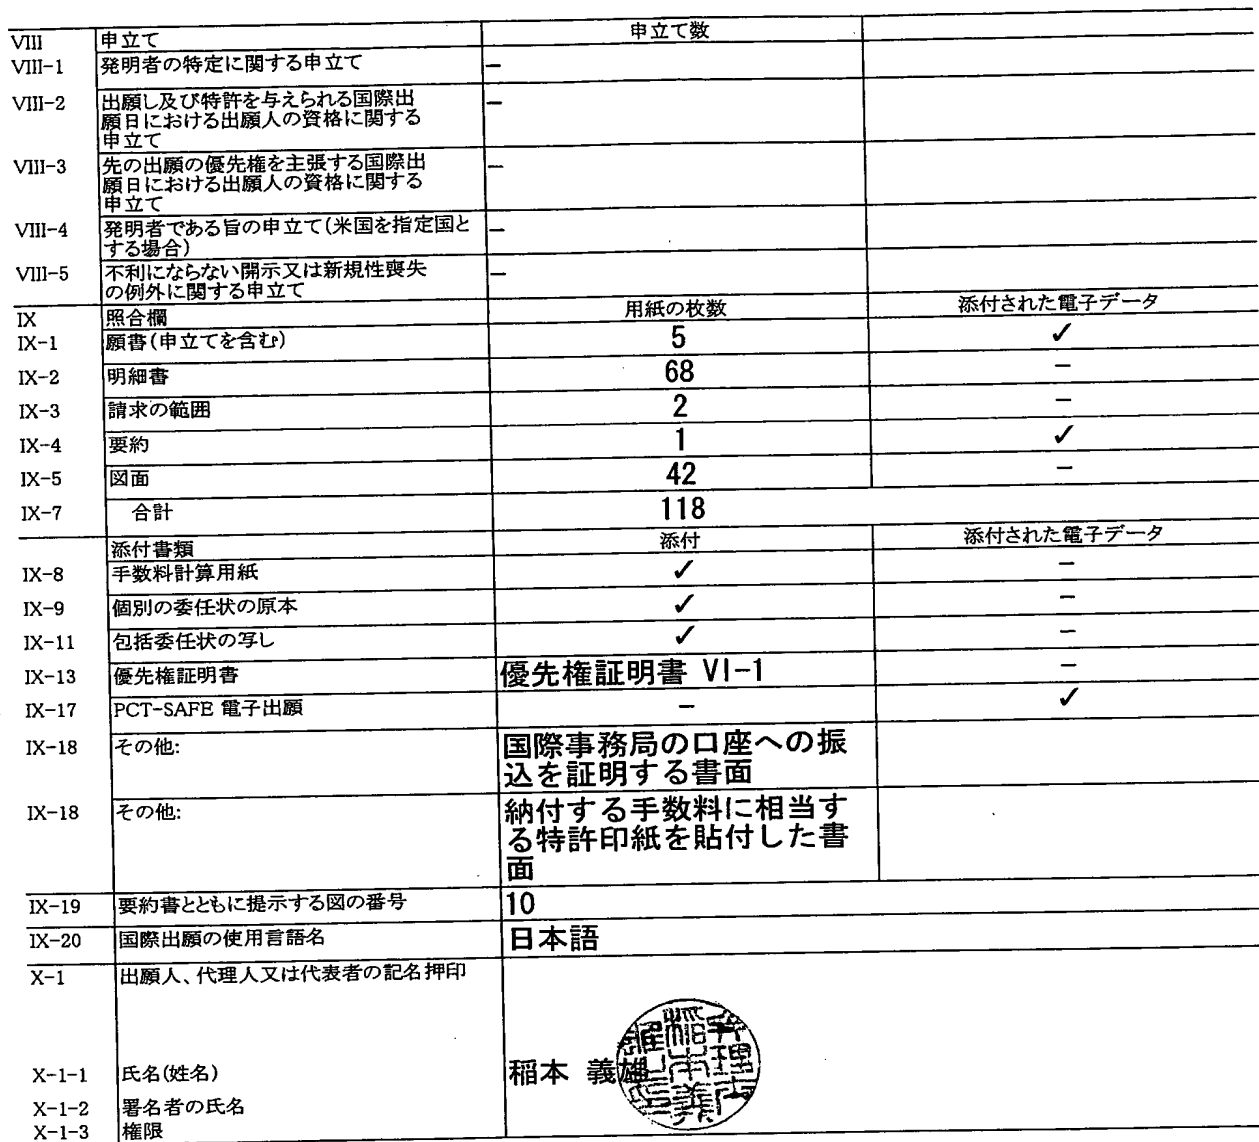 VIII 申立て 申立て数
VIII-1 発明者の特定に関する申立て –
VIII-2 出願し及び特許を与えられる国際出 –
願日における出願人の資格に関する
申立て
VIII-3 先の出願の優先権を主張する国際出 –
願日における出願人の資格に関する
申立て
VIII-4 発明者である旨の申立て(米国を指定国と –
する場合)
VIII-5 不利にならない開示又は新規性喪失 –
の例外に関する申立て
IX 照合欄 用紙の枚数 添付された電子データ
IX-1 願書(申立てを含む) 5 ✓
IX-2 明細書 68 –
IX-3 請求の範囲 2 –
IX-4 要約 1 ✓
IX-5 図面 42 –
IX-7 合計 118
添付書類 添付 添付された電子データ
IX-8 手数料計算用紙 ✓ –
IX-9 個別の委任状の原本 ✓ –
IX-11 包括委任状の写し ✓ –
IX-13 優先権証明書 優先権証明書 VI-1 –
IX-17 PCT-SAFE 電子出願 – ✓
IX-18 その他: 国際事務局の口座への振
込を証明する書面
IX-18 その他: 納付する手数料に相当す
る特許印紙を貼付した書
面
IX-19 要約書とともに提示する図の番号 10
IX-20 国際出願の使用言語名 日本語
X-1 出願人、代理人又は代表者の記名押印
X-1-1 氏名(姓名) 稲本 義雄
X-1-2 署名者の氏名
X-1-3 権限